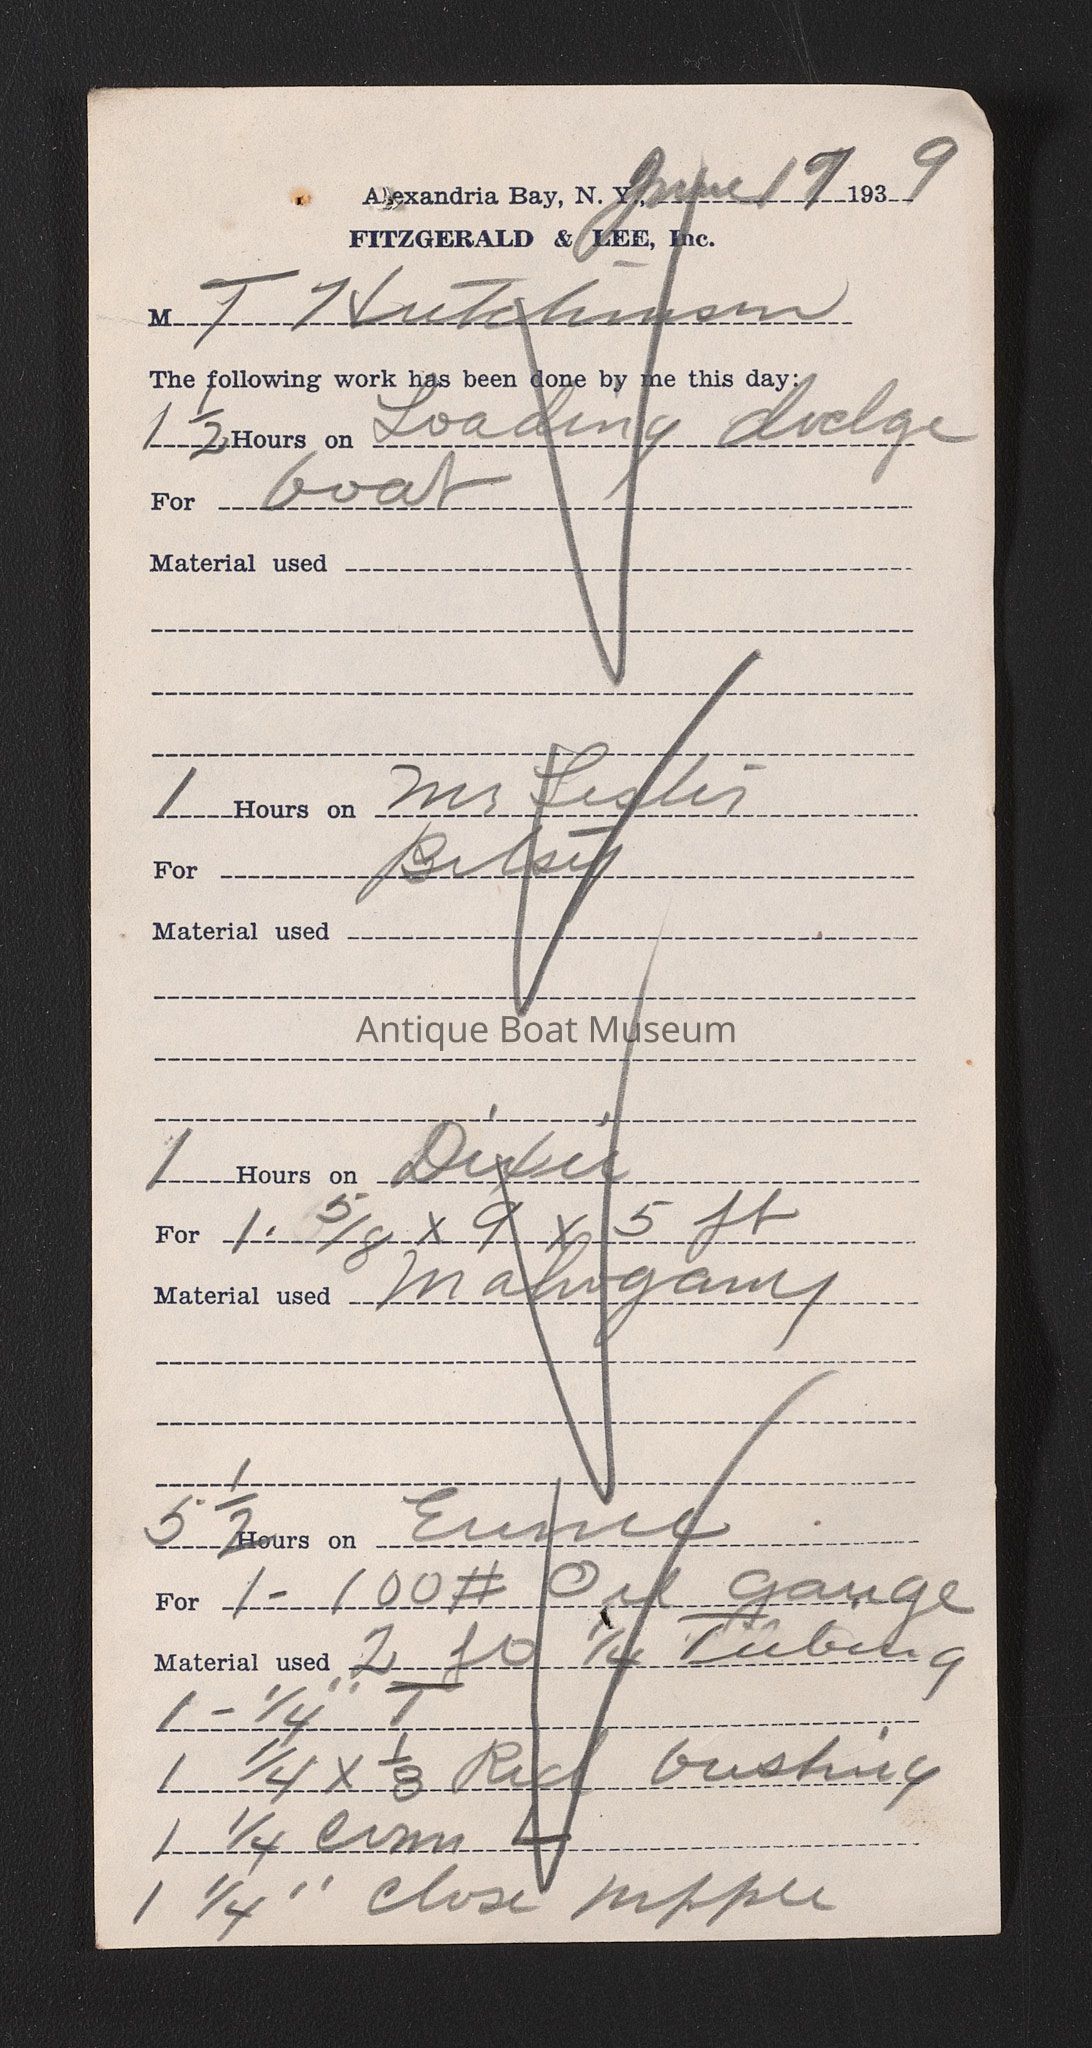 Alexandria Bay, N. Y., June 17 1939
FITZGERALD & LEE, Inc.
M T Hutchinson
The following work has been done by me this day:
1 1/2 Hours on Loading dodge
For boat
Material used
1 Hours on Mr Leslie
For Betsy
Material used
Antique Boat Museum
1 Hours on Dixie
For 1. 5/8 x 9 x 5 ft
Material used Mahogany
5 1/2 Hours on
For 1 - 100# Oil gauge
Material used 2 1/4 Tubing
1 - 1/4" T
1 1/4 x 1/8 Red bushing
1 1/4 Conn L
1 1/4" close nipple